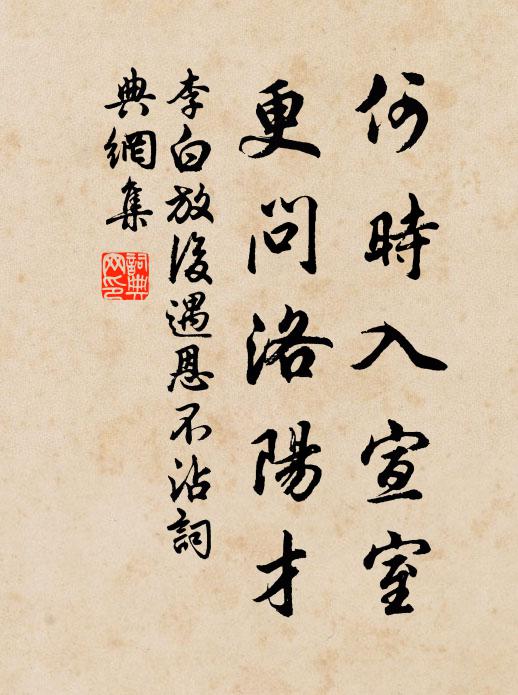 何時入宣室
更問洛陽才
李白放後遇恩不沾詞
典網集
詞典
网印